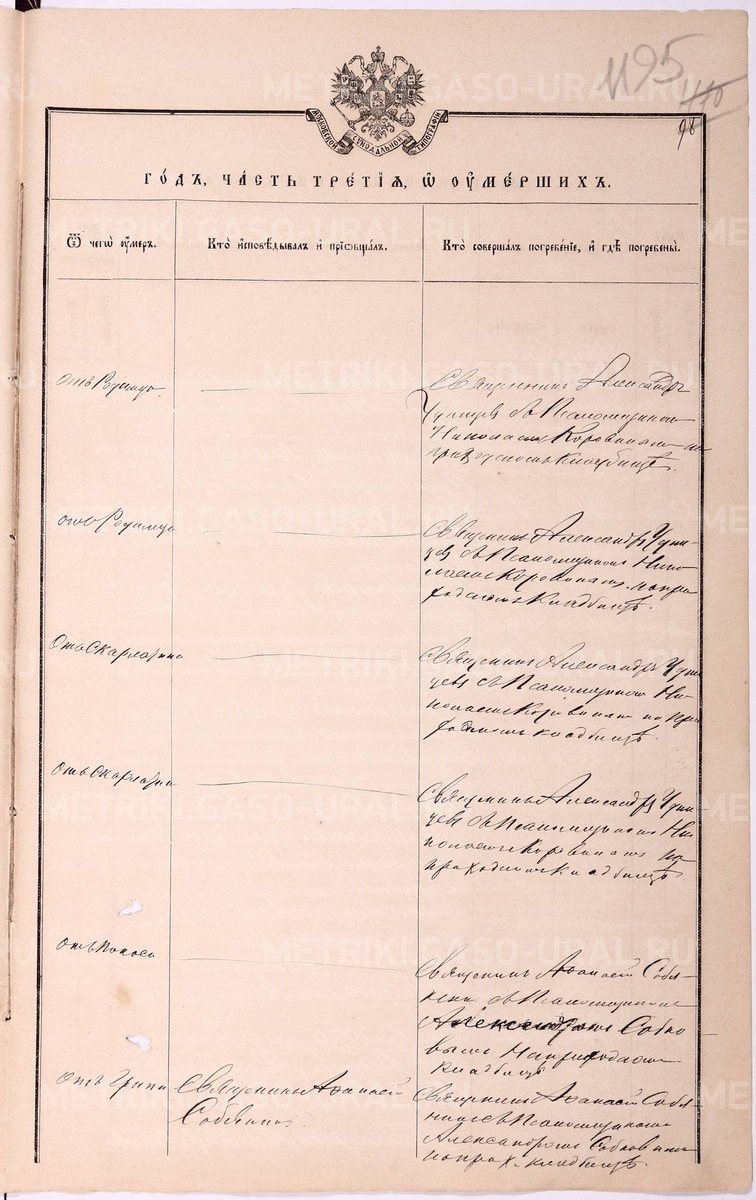 METRIKI.GASO-URAL.RU
1195
110
98
МОСКОВСКОЙ СѴНОДАЛЬНОЙ ТИПОГРАФІИ
ГО́ДЪ, ЧА́СТЬ ТРЕ́ТІЯ, Ѿ ОУМЕ́РШИХЪ.
Ѿ чегѡ̀ оу́меръ.
Кто̀ и҆сповѣ́дывалъ и҆ прїѡбща́лъ.
Кто̀ соверша́лъ погребе́нїе, и҆ гдѣ̀ погребены̀.
отъ Родимца
Священникъ Александръ
съ Псаломщикомъ
Николаемъ Коровинымъ на
приходскомъ кладбищѣ.
отъ Родимца
Священникъ Александръ
съ Псаломщикомъ Нико
лаемъ Коровинымъ на при
ходскомъ кладбищѣ.
Отъ Скарлатины
Священникъ Александръ
съ Псаломщикомъ Ни
колаемъ Коровинымъ на при
ходскомъ кладбищѣ.
Отъ Скарлатины
Священникъ Александръ
съ Псаломщикомъ Ни
колаемъ Коровинымъ на
приходскомъ кладбищѣ
Отъ поноса
Священникъ Аѳанасій Собя
нинъ съ Псаломщикомъ
Александромъ Собко
вымъ на приходскомъ
кладбищѣ
Отъ Грипа
Священникъ Аѳанасій
Собянинъ.
Священникъ Аѳанасій Собя
нинъ съ Псаломщикомъ
Александромъ Собковымъ
на прих. кладбищѣ.